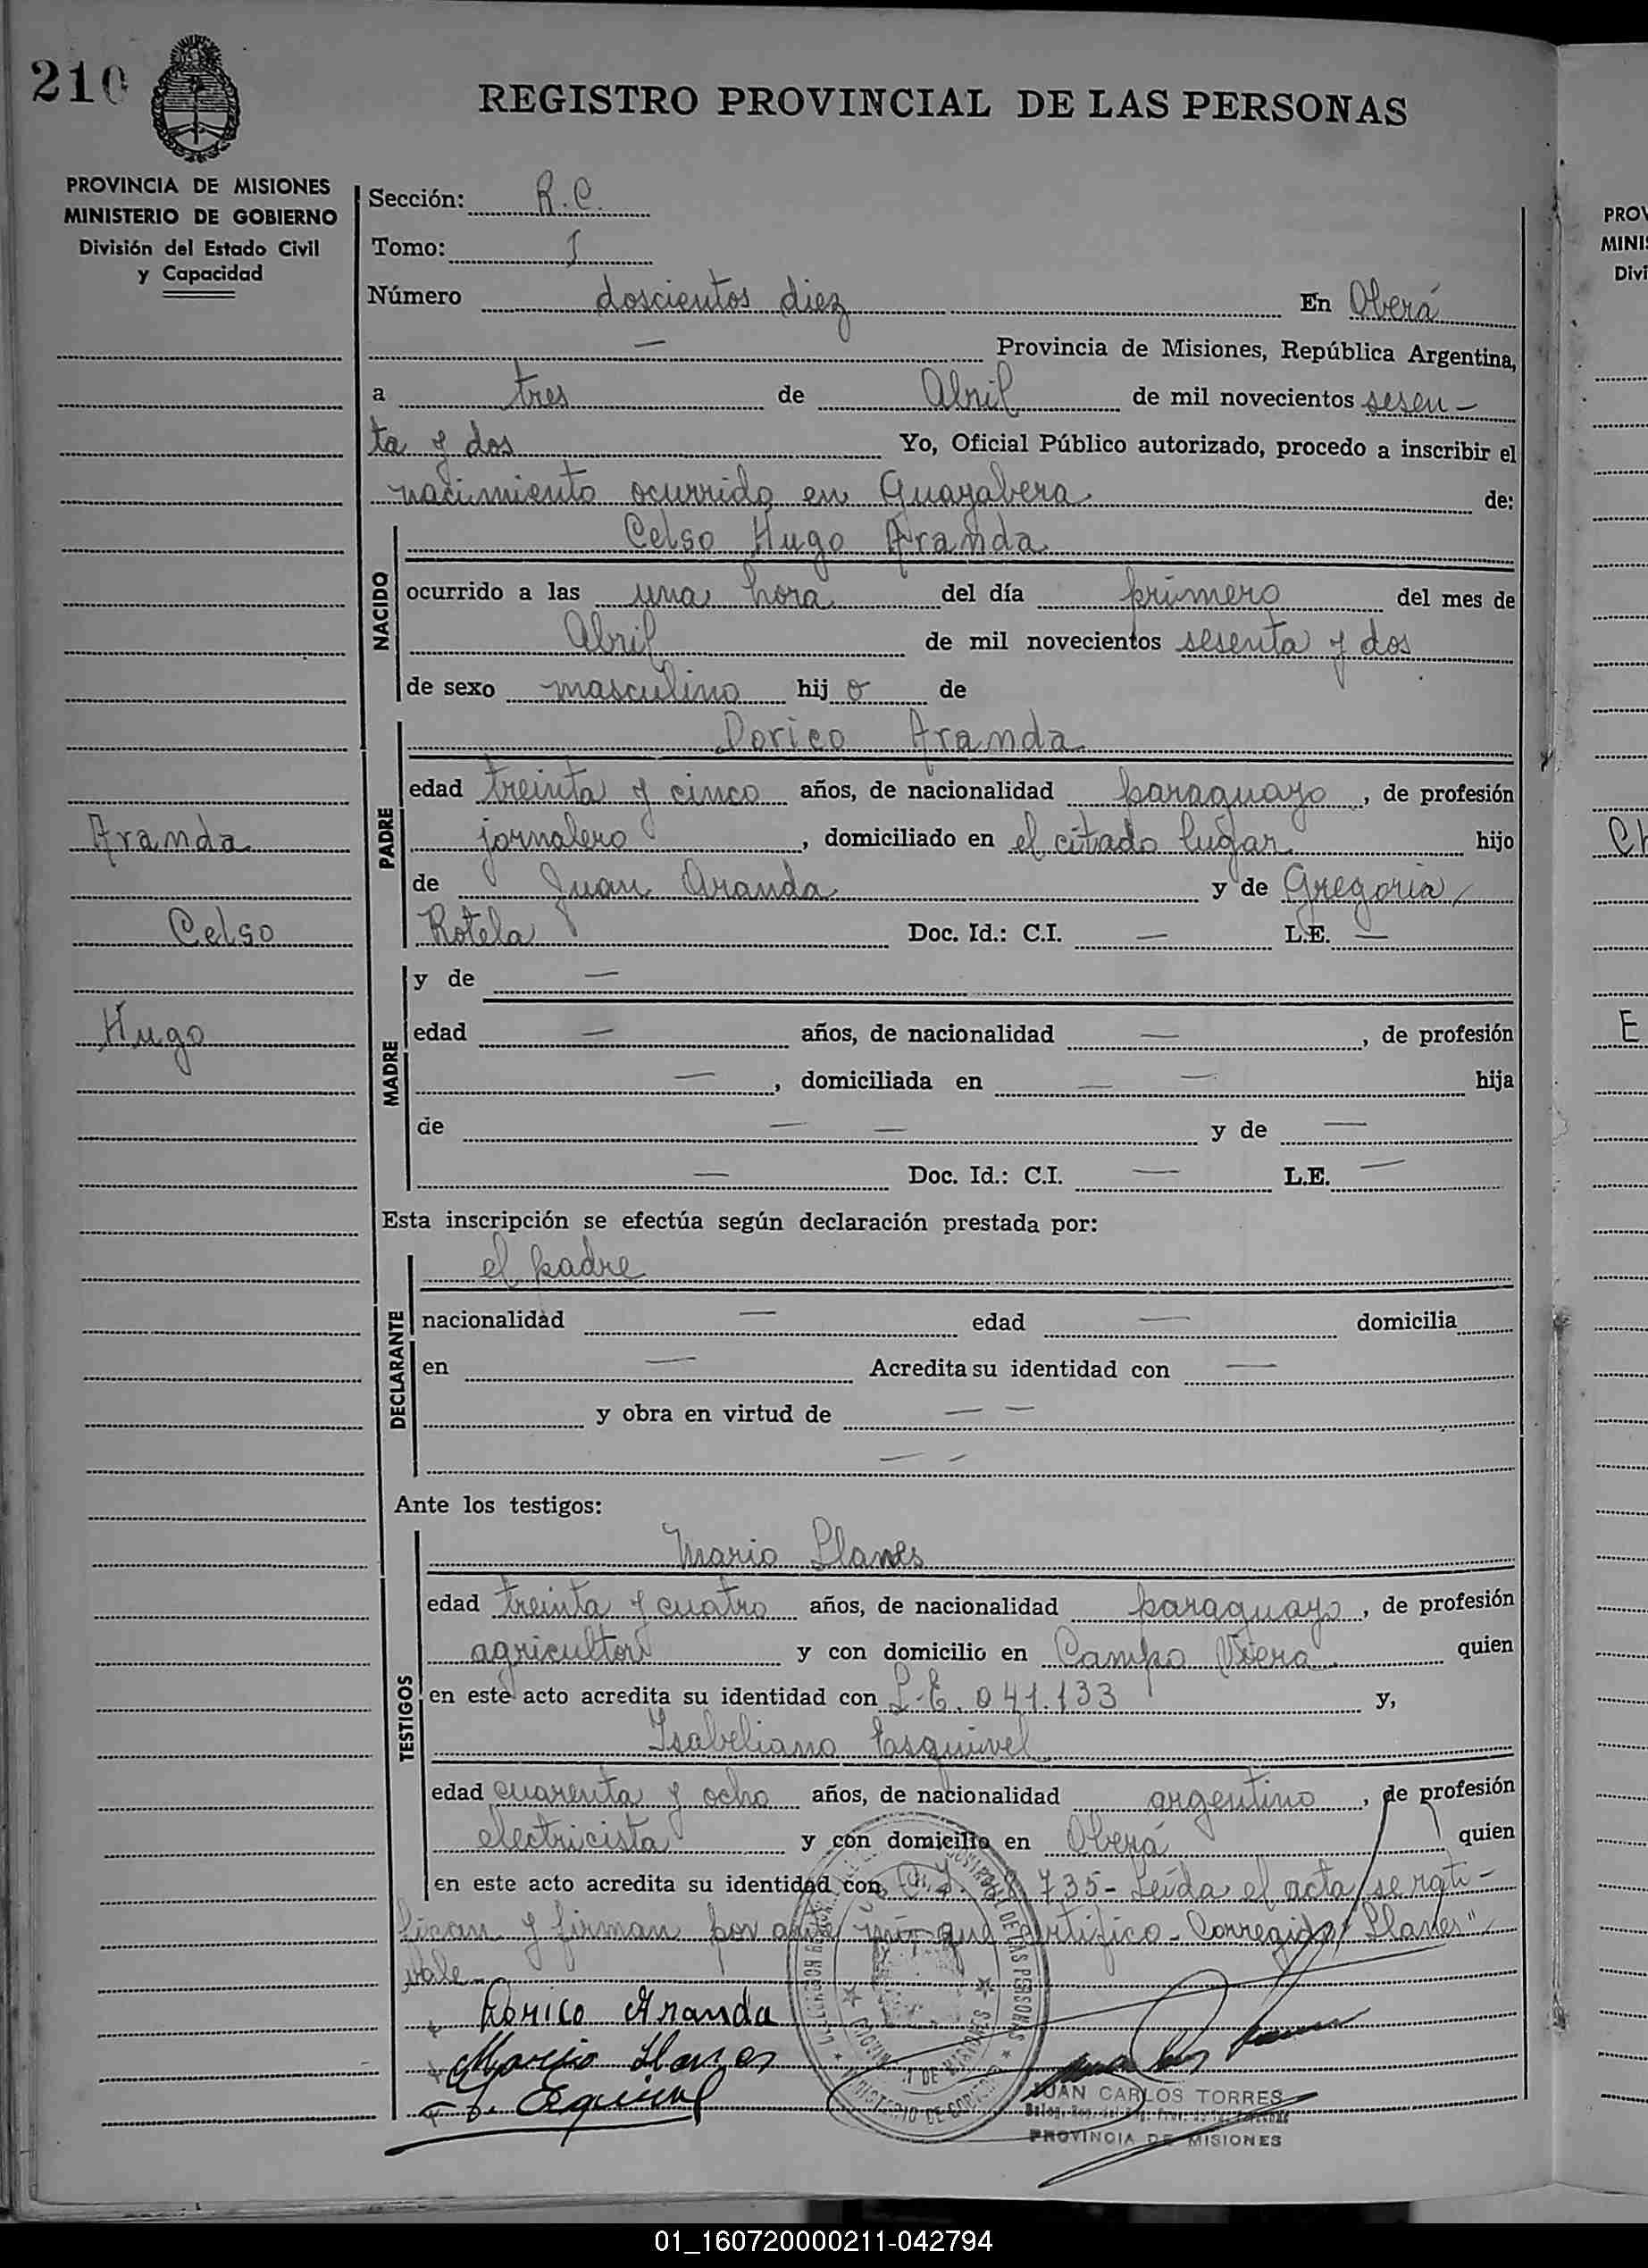 210
REGISTRO PROVINCIAL DE LAS PERSONAS
PROVINCIA DE MISIONES
MINISTERIO DE GOBIERNO
División del Estado Civil
y Capacidad
Sección: R.C.
Tomo: I
Número doscientos diez En Oberá
— Provincia de Misiones, República Argentina,
a tres de Abril de mil novecientos sesen-
ta y dos Yo, Oficial Público autorizado, procedo a inscribir el
nacimiento ocurrido en Guayabera de:
NACIDO
Celso Hugo Aranda
ocurrido a las una hora del día primero del mes de
Abril de mil novecientos sesenta y dos
de sexo masculino hijo de
PADRE
Dorico Aranda
edad treinta y cinco años, de nacionalidad paraguayo, de profesión
jornalero, domiciliado en el citado lugar hijo
de Juan Aranda y de Gregoria
Rotela Doc. Id.: C.I. — L.E. —
Aranda
Celso
Hugo
MADRE
y de —
edad — años, de nacionalidad —, de profesión
—, domiciliada en — — hija
de — — y de —
— Doc. Id.: C.I. — L.E. —
Esta inscripción se efectúa según declaración prestada por:
DECLARANTE
el padre
nacionalidad — edad — domicilia
en — Acredita su identidad con —
y obra en virtud de — —
— —
Ante los testigos:
TESTIGOS
Mario Llanes
edad treinta y cuatro años, de nacionalidad paraguayo, de profesión
agricultor y con domicilio en Campo Viera quien
en este acto acredita su identidad con L.E. 041.133 y,
Isabeliano Esquivel
edad cuarenta y ocho años, de nacionalidad argentino, de profesión
electricista y con domicilio en Oberá quien
en este acto acredita su identidad con C.I. 735- Leída el acta, se rati-
fican y firman por ante mí que certifico- Corregido "Llanes"
vale-
Dorico Aranda
Mario Llanes
Esquivel
JUAN CARLOS TORRES
PROVINCIA DE MISIONES
PROV
MINIS
Divi
Ch
E
01_160720000211-042794